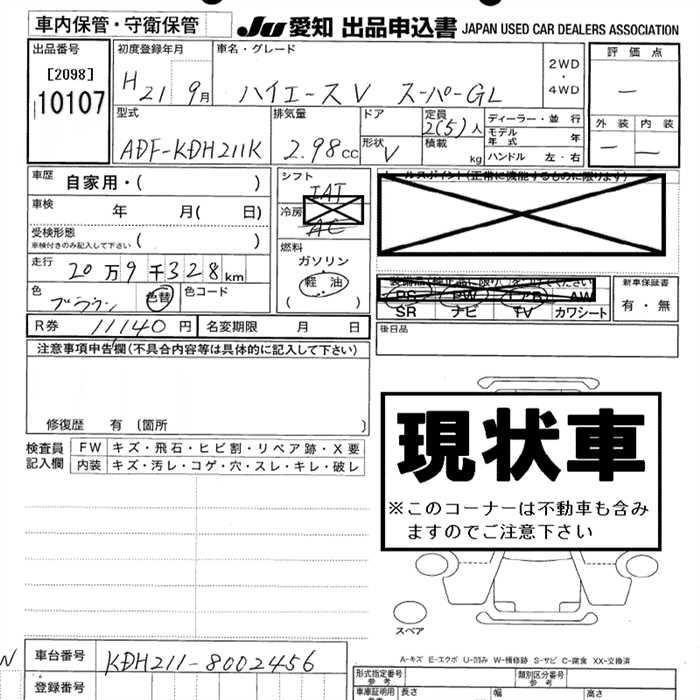 車内保管・守衛保管
JU 愛知 出品申込書 JAPAN USED CAR DEALERS ASSOCIATION
出品番号
[2098]
10107
初度登録年月
H 21 9月
車名・グレード
ハイエースV スーパーGL
2WD
・
4WD
評価点
—
型式
ADF-KDH211K
排気量
2.98cc
ドア
形状 V
定員
2(5)人
積載 kg
ディーラー・並行
モデル年式 年
ハンドル 左・右
外装 内装
— —
車歴 自家用・( )
車検 年 月( 日)
受検形態
車検付きのみ記入して下さい ( )
走行 20万9千328km
色 ブラウン 色替
色コード
シフト
IAT
冷房
AC
燃料
ガソリン
軽油
( )
セールスポイント(正常に機能するものに限ります)
PS PW エアB AW
SR ナビ TV カワシート
新車保証書
有・無
R券 11,140円
名変期限 月 日
後日品
注意事項申告欄(不具合内容等は具体的に記入して下さい)
修復歴 有 〔箇所 〕
現状車
※このコーナーは不動車も含み
ますのでご注意下さい
検査員
記入欄
FW キズ・飛石・ヒビ割・リペア跡・X要
内装 キズ・汚レ・コゲ・穴・スレ・キレ・破レ
スペア
A-キズ E-エクボ U-凹み W-補修跡 S-サビ C-腐食 XX-交換済
N
車台番号 KDH211-8002456
登録番号
形式指定番号
参考
類別区分番号
参考
車庫証明用
参考
長さ 幅 高さ